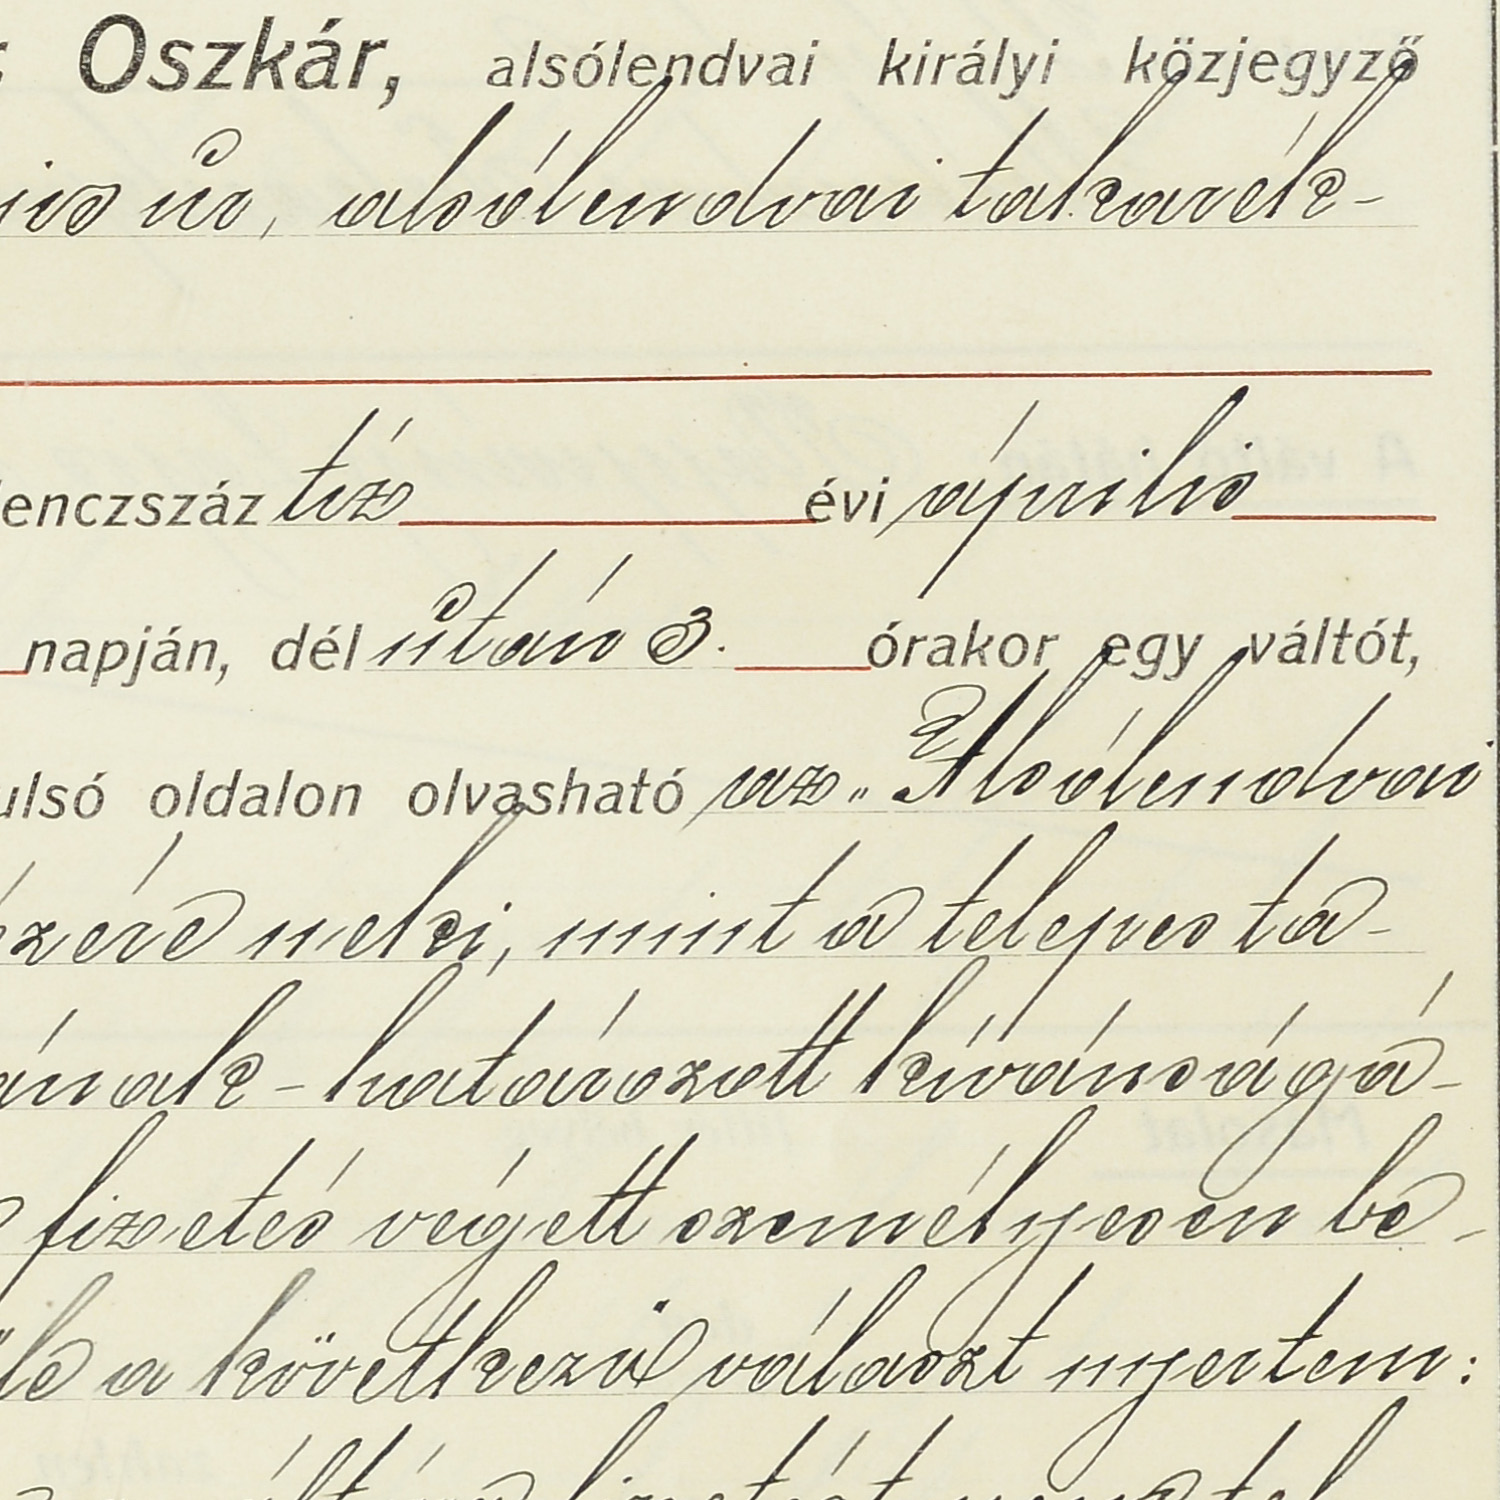 Oszkár, alsólendvai királyi közjegyző
úr, alsólendvai takarék-
enczszáz tiz évi április
napján, dél után 3. órakor egy váltót,
ulsó oldalon olvasható az „Alsólendvai
neki, mint a telepes ta-
ának - határozott kívánságá-
fizetés végett személyesen be-
a következő választ nyertem: